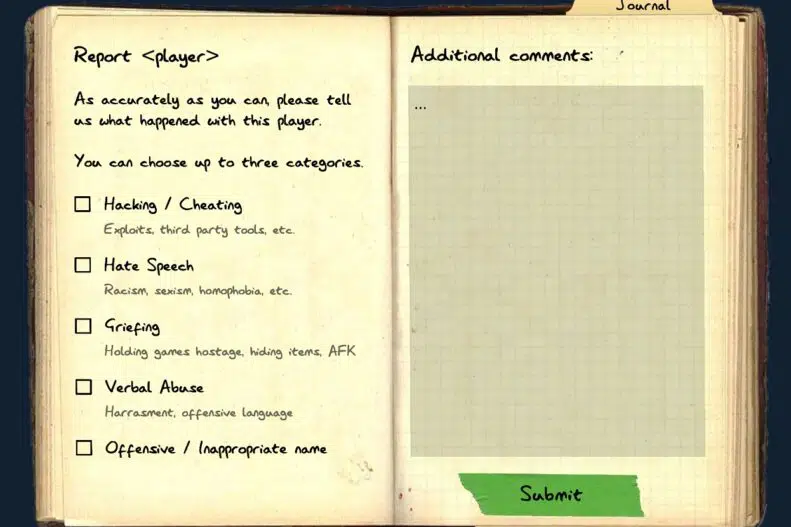 Journal
Report <player>
As accurately as you can, please tell
us what happened with this player.
You can choose up to three categories.
Hacking / Cheating
Exploits, third party tools, etc.
Hate Speech
Racism, sexism, homophobia, etc.
Griefing
Holding games hostage, hiding items, AFK
Verbal Abuse
Harrasment, offensive language
Offensive / Inappropriate name
Additional comments:
...
Submit